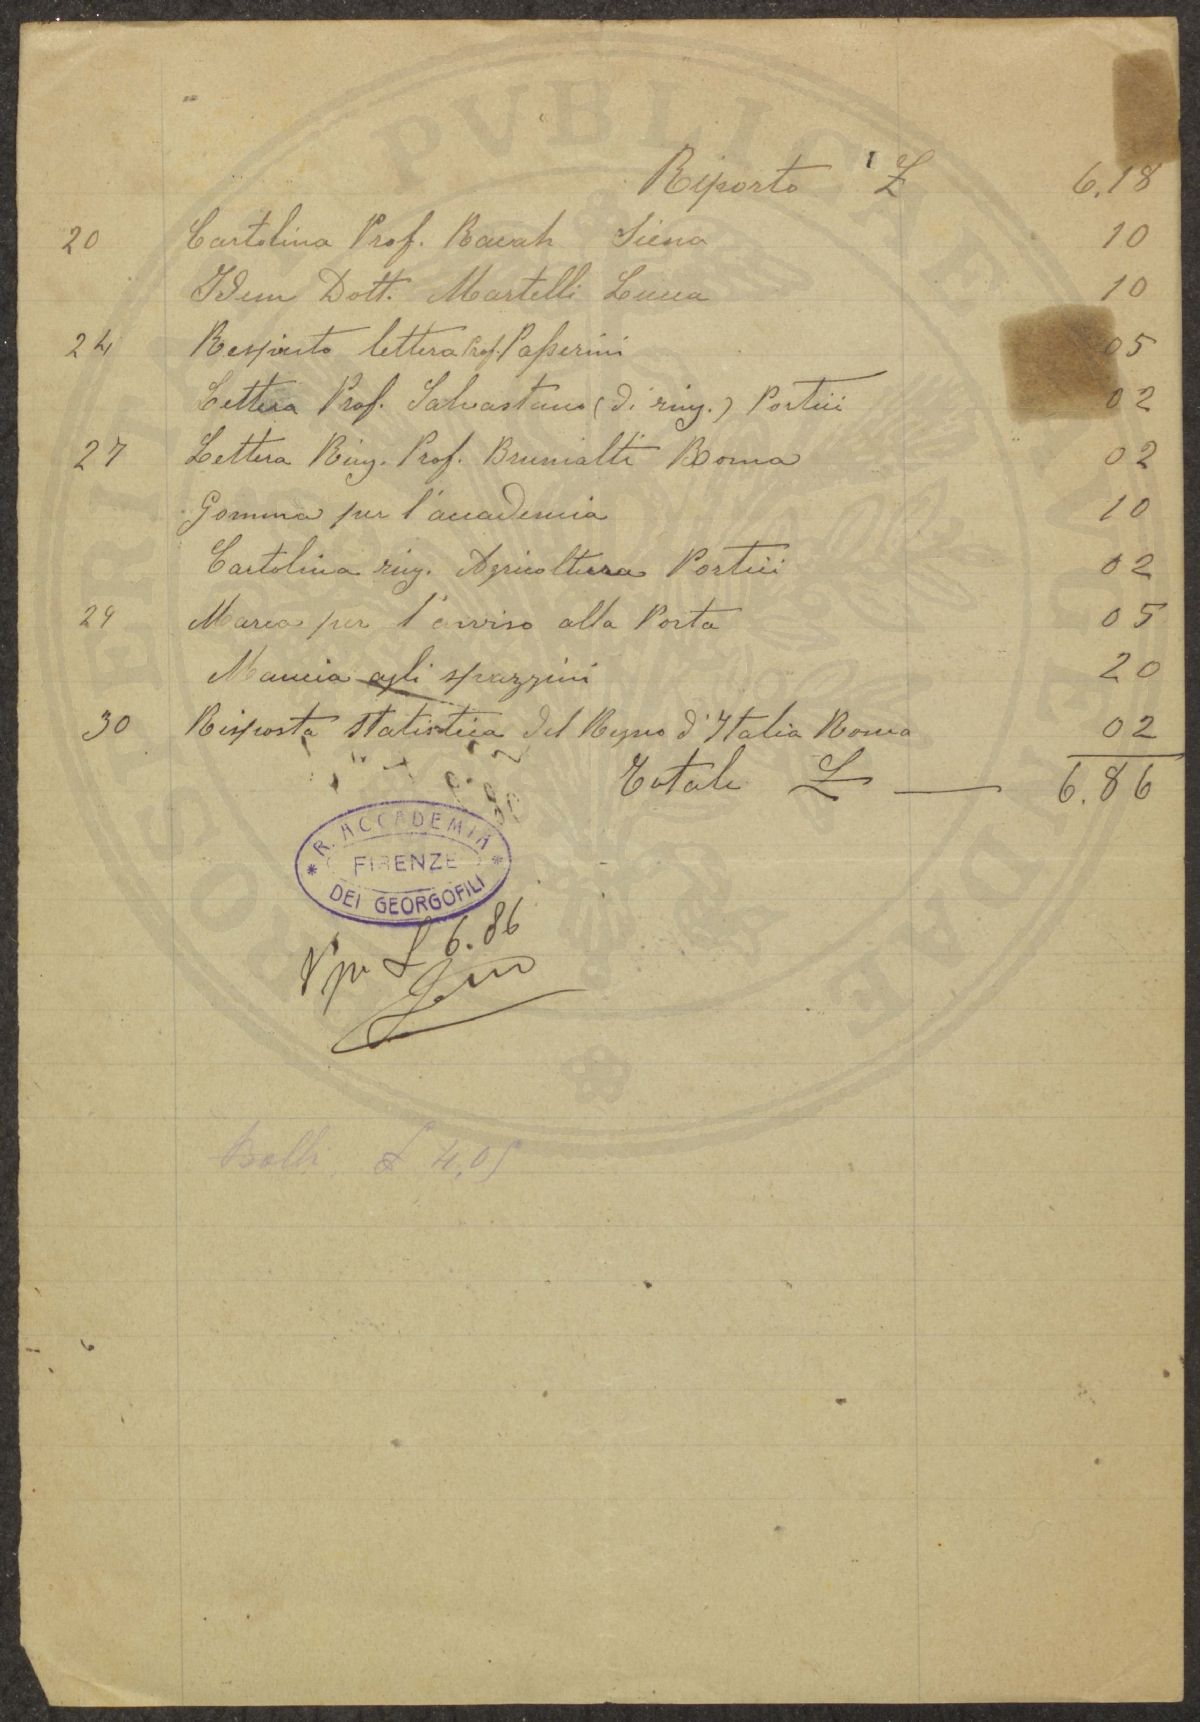 Riporto £ 6.18
20 Cartolina Prof. Ravah Siena 10
Idem Dott. Martelli Lucca 10
24 Respinto lettera Prof. Passerini 05
Lettera Prof. Salvastano (di ring.) Portici 02
27 Lettera Ring. Prof. Brunialti Roma 02
Gomma per l'accademia 10
Cartolina ring. Agricoltura Portici 02
29 Marca per l'avviso alla Porta 05
Mancia agli spazzini 20
30 Risposta statistica del Regno d'Italia Roma 02
Totale £ — 6.86
R. ACCADEMIA
FIRENZE
DEI GEORGOFILI
V° per £ 6.86
Bolli £ 4,05